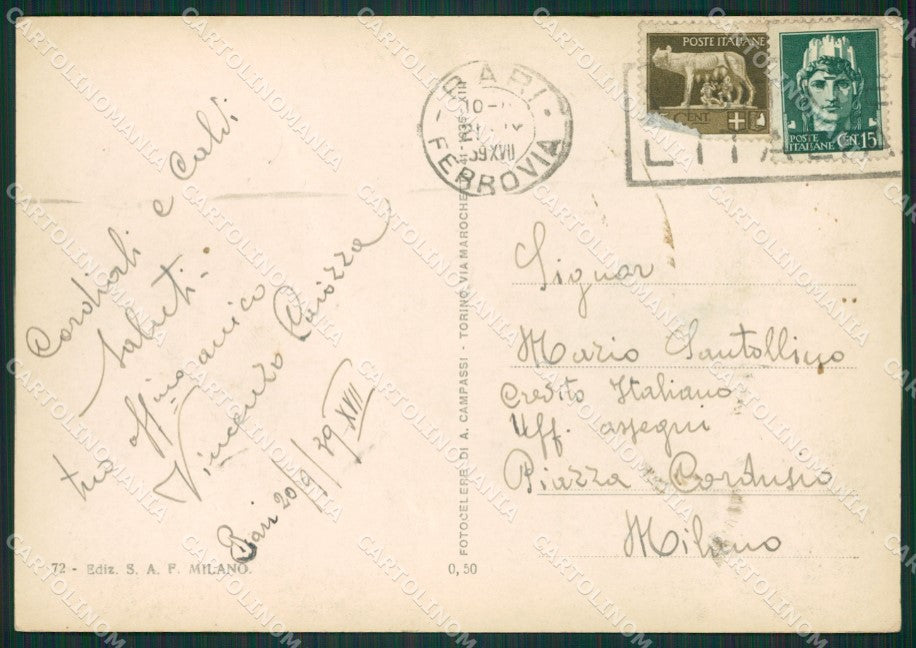 Cordiali e Caldi
Saluti.
tuo aff.mo amico
Vincenzo Caiozza
Bari 20/9/39-XVII
72 - Ediz. S. A. F. MILANO.
0,50
FOTOCELERE DI A. CAMPASSI - TORINO, VIA MAROCHE
BARI
39 XVII
FERROVIA
POSTE ITALIANE
CENT
POSTE
ITALIANE
CENT. 15
Signor
Mario Santollino
Credito Italiano
Uff. assegni
Piazza Cordusio
Milano
CARTOLINOMANIA